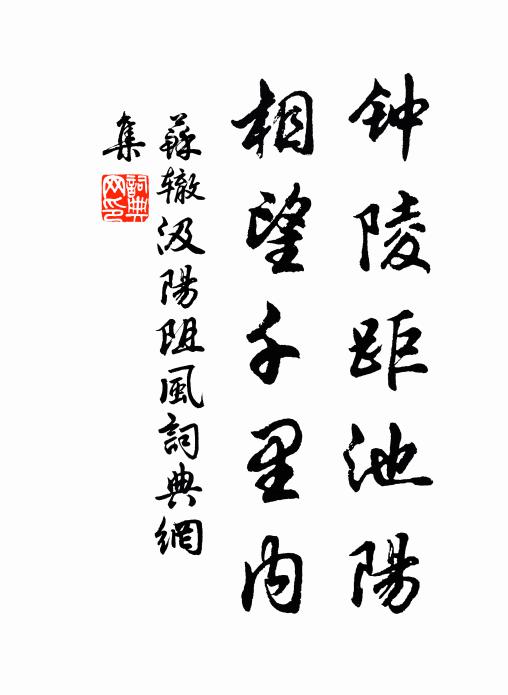 钟陵距池陽
相望千里内
蘇辙汲陽阻風詞典網
集
詞典
网印